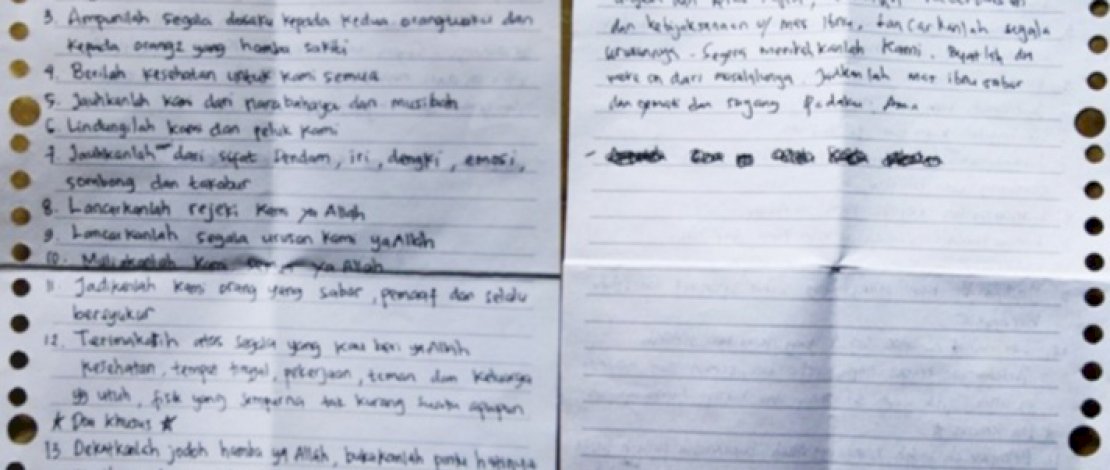 3. Ampunilah segala dosaku kepada kedua orangtuaku dan
kepada orang2 yang hamba sakiti
4. Berilah kesehatan untuk kami semua
5. Jauhkanlah kami dari marabahaya dan musibah
6. Lindungilah kami dan peluk kami
7. Jauhkanlah dari sifat dendam, iri, dengki, emosi,
sombong dan takabur
8. Lancarkanlah rejeki kami ya Allah
9. Lancarkanlah segala urusan kami ya Allah
10. kami ya Allah
11. Jadikanlah kami orang yang sabar, pemaaf dan selalu
bersyukur
12. Terimakasih atas segala yang kau beri ya Allah
kesehatan, tempat tinggal, pekerjaan, teman dan keluarga
yg utuh, fisik yang sempurna tak kurang suatu apapun
* Doa khusus *
13. Dekatkanlah jodoh hamba ya Allah, bukakanlah pintu hatinya
dan kebijaksanaan u/ mas Ibnu, lancarkanlah segala
urusannya. Segera kami.
dari masalahnya. Jadikanlah mas ibnu sabar
dan dan sayang padaku.